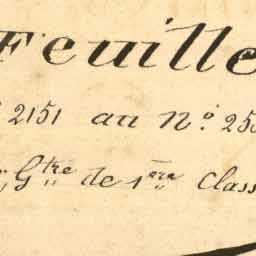 Feuille
2151 au N.º 25
Gtre de 1ère Class